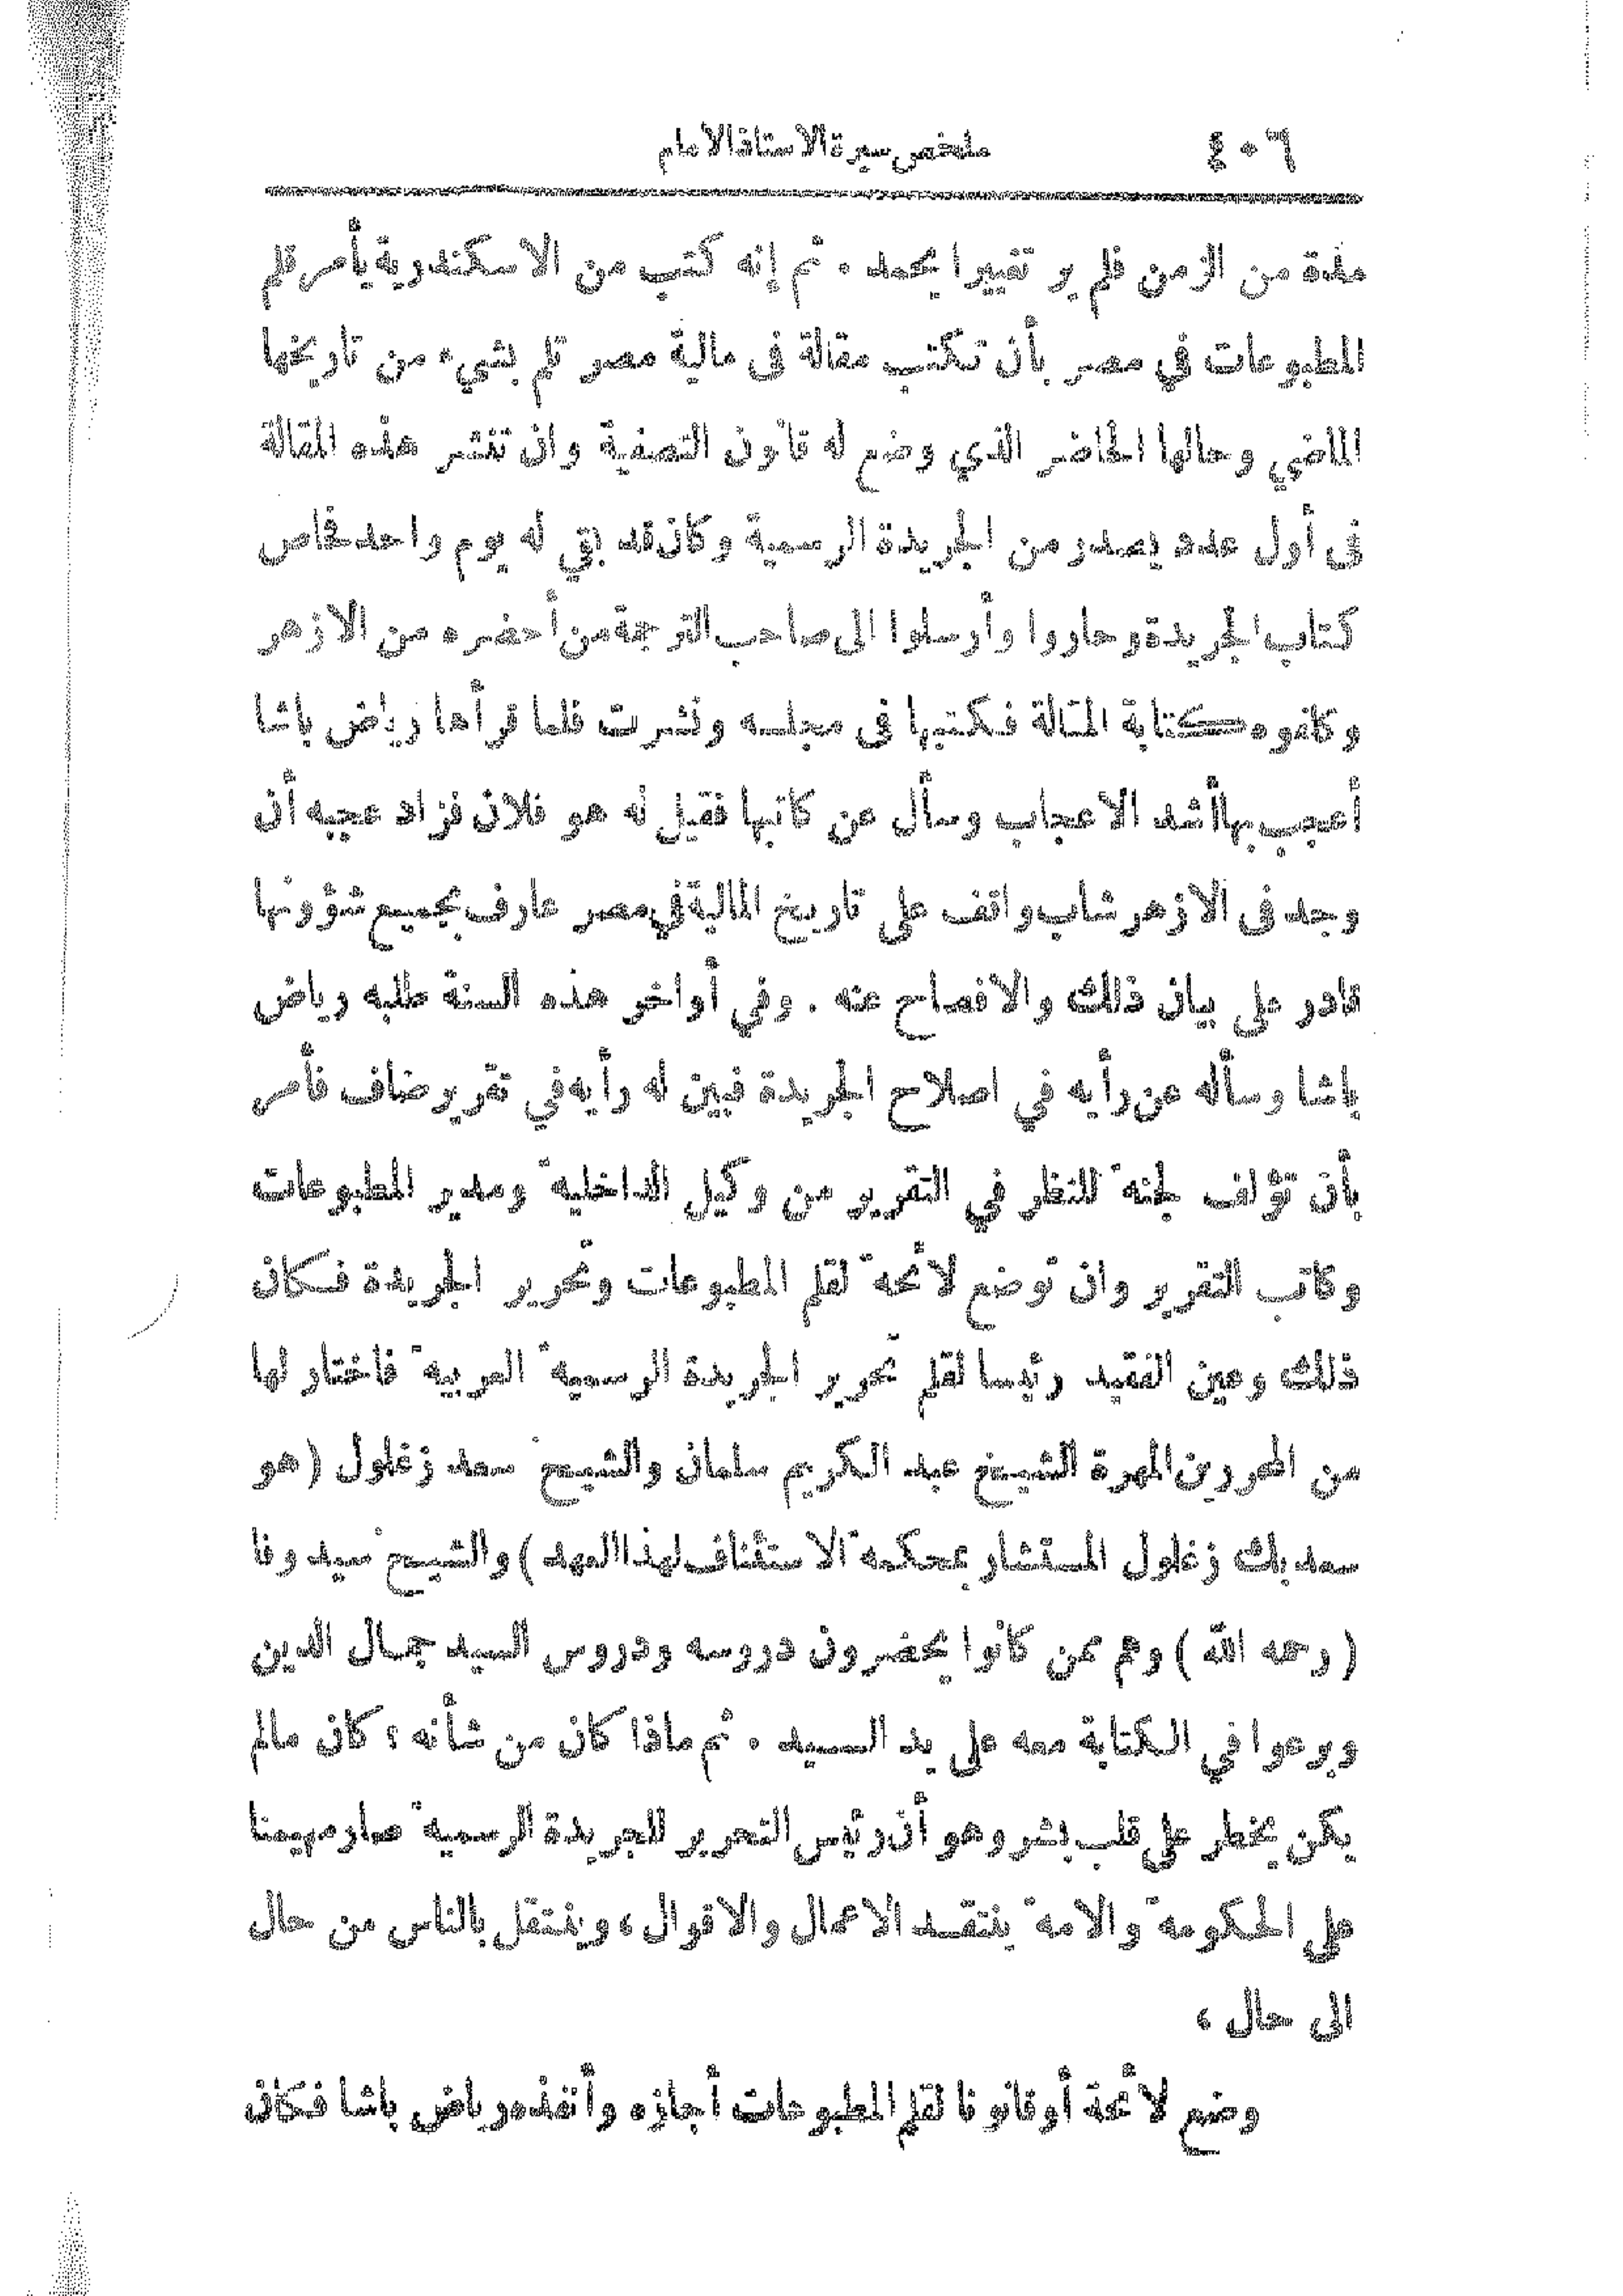 ٤٠٦ ملخص سيرة الاستاذ الامام
مدة من الزمن فلم ير تغييرا يحمد . ثم إنه كتب من الاسكندرية يأمر قلم
المطبوعات في مصر بأن تكتب مقالة في مالية مصر تلم بشيء من تاريخها
الماضي وحالها الحاضر الذي وضع له قانون التصفية وان تنشر هذه المقالة
في أول عدد يصدر من الجريدة الرسمية وكان قد بقي له يوم واحد فحاص
كتاب الجريدة وحاروا وأرسلوا الى صاحب الترجمة من أحضره من الازهر
وكلفوه كتابة المقالة فكتبها في مجلسه ونشرت فلما قرأها رياض باشا
أعجب بها أشد الاعجاب وسأل عن كاتبها فقيل له هو فلان فزاد عجبه أن
وجد في الازهر شاب واقف على تاريخ المالية في مصر عارف بجميع شؤونها
قادر على بيان ذلك والافصاح عنه . وفي أواخر هذه السنة طلبه رياض
باشا وسأله عن رأيه في اصلاح الجريدة فبين له رأيه في تقرير ضاف فأمر
بأن تؤلف لجنة للنظر في التقرير من وكيل الداخلية ومدير المطبوعات
وكاتب التقرير وان توضع لائحة لقلم المطبوعات وتحرير الجريدة فكان
ذلك وعين الفقيد رئيسا لقلم تحرير الجريدة الرسمية العربية فاختار لها
من المحررين المهرة الشيخ عبد الكريم سلمان والشيخ سعد زغلول (هو
سعد بك زغلول المستشار بمحكمة الاستئناف لهذا العهد) والشيخ سيد وفا
(رحمه الله) وهم ممن كانوا يحضرون دروسه ودروس السيد جمال الدين
وبرعوا في الكتابة معه على يد السيد . ثم ماذا كان من شأنه ؟ كان مالم
يكن يخطر على قلب بشر وهو أن رئيس التحرير للجريدة الرسمية صار مهيمنا
على الحكومة والامة ينتقد الاعمال والاقوال، وينتقل بالناس من حال
الى حال ،
وضع لائحة أو قانونا لقلم المطبوعات أجازه وأنفذه رياض باشا فكان